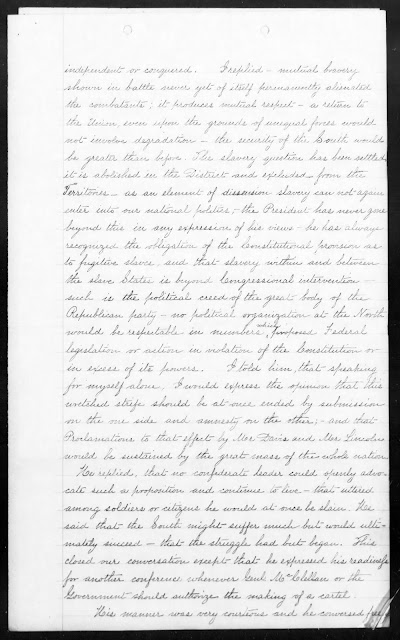 independent or conquered. I replied – mutual bravery
shown in battle never yet of itself permanently alienated
the combatants; it produces mutual respect – a return to
the Union, even upon the grounds of unequal forces would
not involve degradation – the security of the South would
be greater than before. The slavery question has been settled
it is abolished in the District and excluded from the
Territories – as an element of dissension slavery can not again
enter into our national politics; – the President has never gone
beyond this in any expression of his views – he has always
recognized the obligation of the Constitutional provision as
to fugitive slaves, and that slavery within and between
the slave States is beyond Congressional intervention –
such is the political creed of the great body of the
Republican party – no political organization at the North
would be respectable in numbers, which proposed Federal
legislation or action in violation of the Constitution or
in excess of its powers. I told him, that speaking
for myself alone, I would express the opinion that this
wretched strife should be at once ended by submission
on the one side and amnesty on the other; – and that
Proclamations to that effect by Mr. Davis and Mr. Lincoln
would be sustained by the great mass of the whole nation
He replied, that no confederate leader could openly advo-
cate such a proposition and continue to live – that uttered
among soldiers or citizens he would at once be slain. He
said that the South might suffer much but would ulti-
mately succeed – that the struggle had but begun. This
closed our conversation except that he expressed his readiness
for another conference whenever Genl. McClellan or the
Government should authorize the making of a cartel.
His manner was very courteous and he conversed free